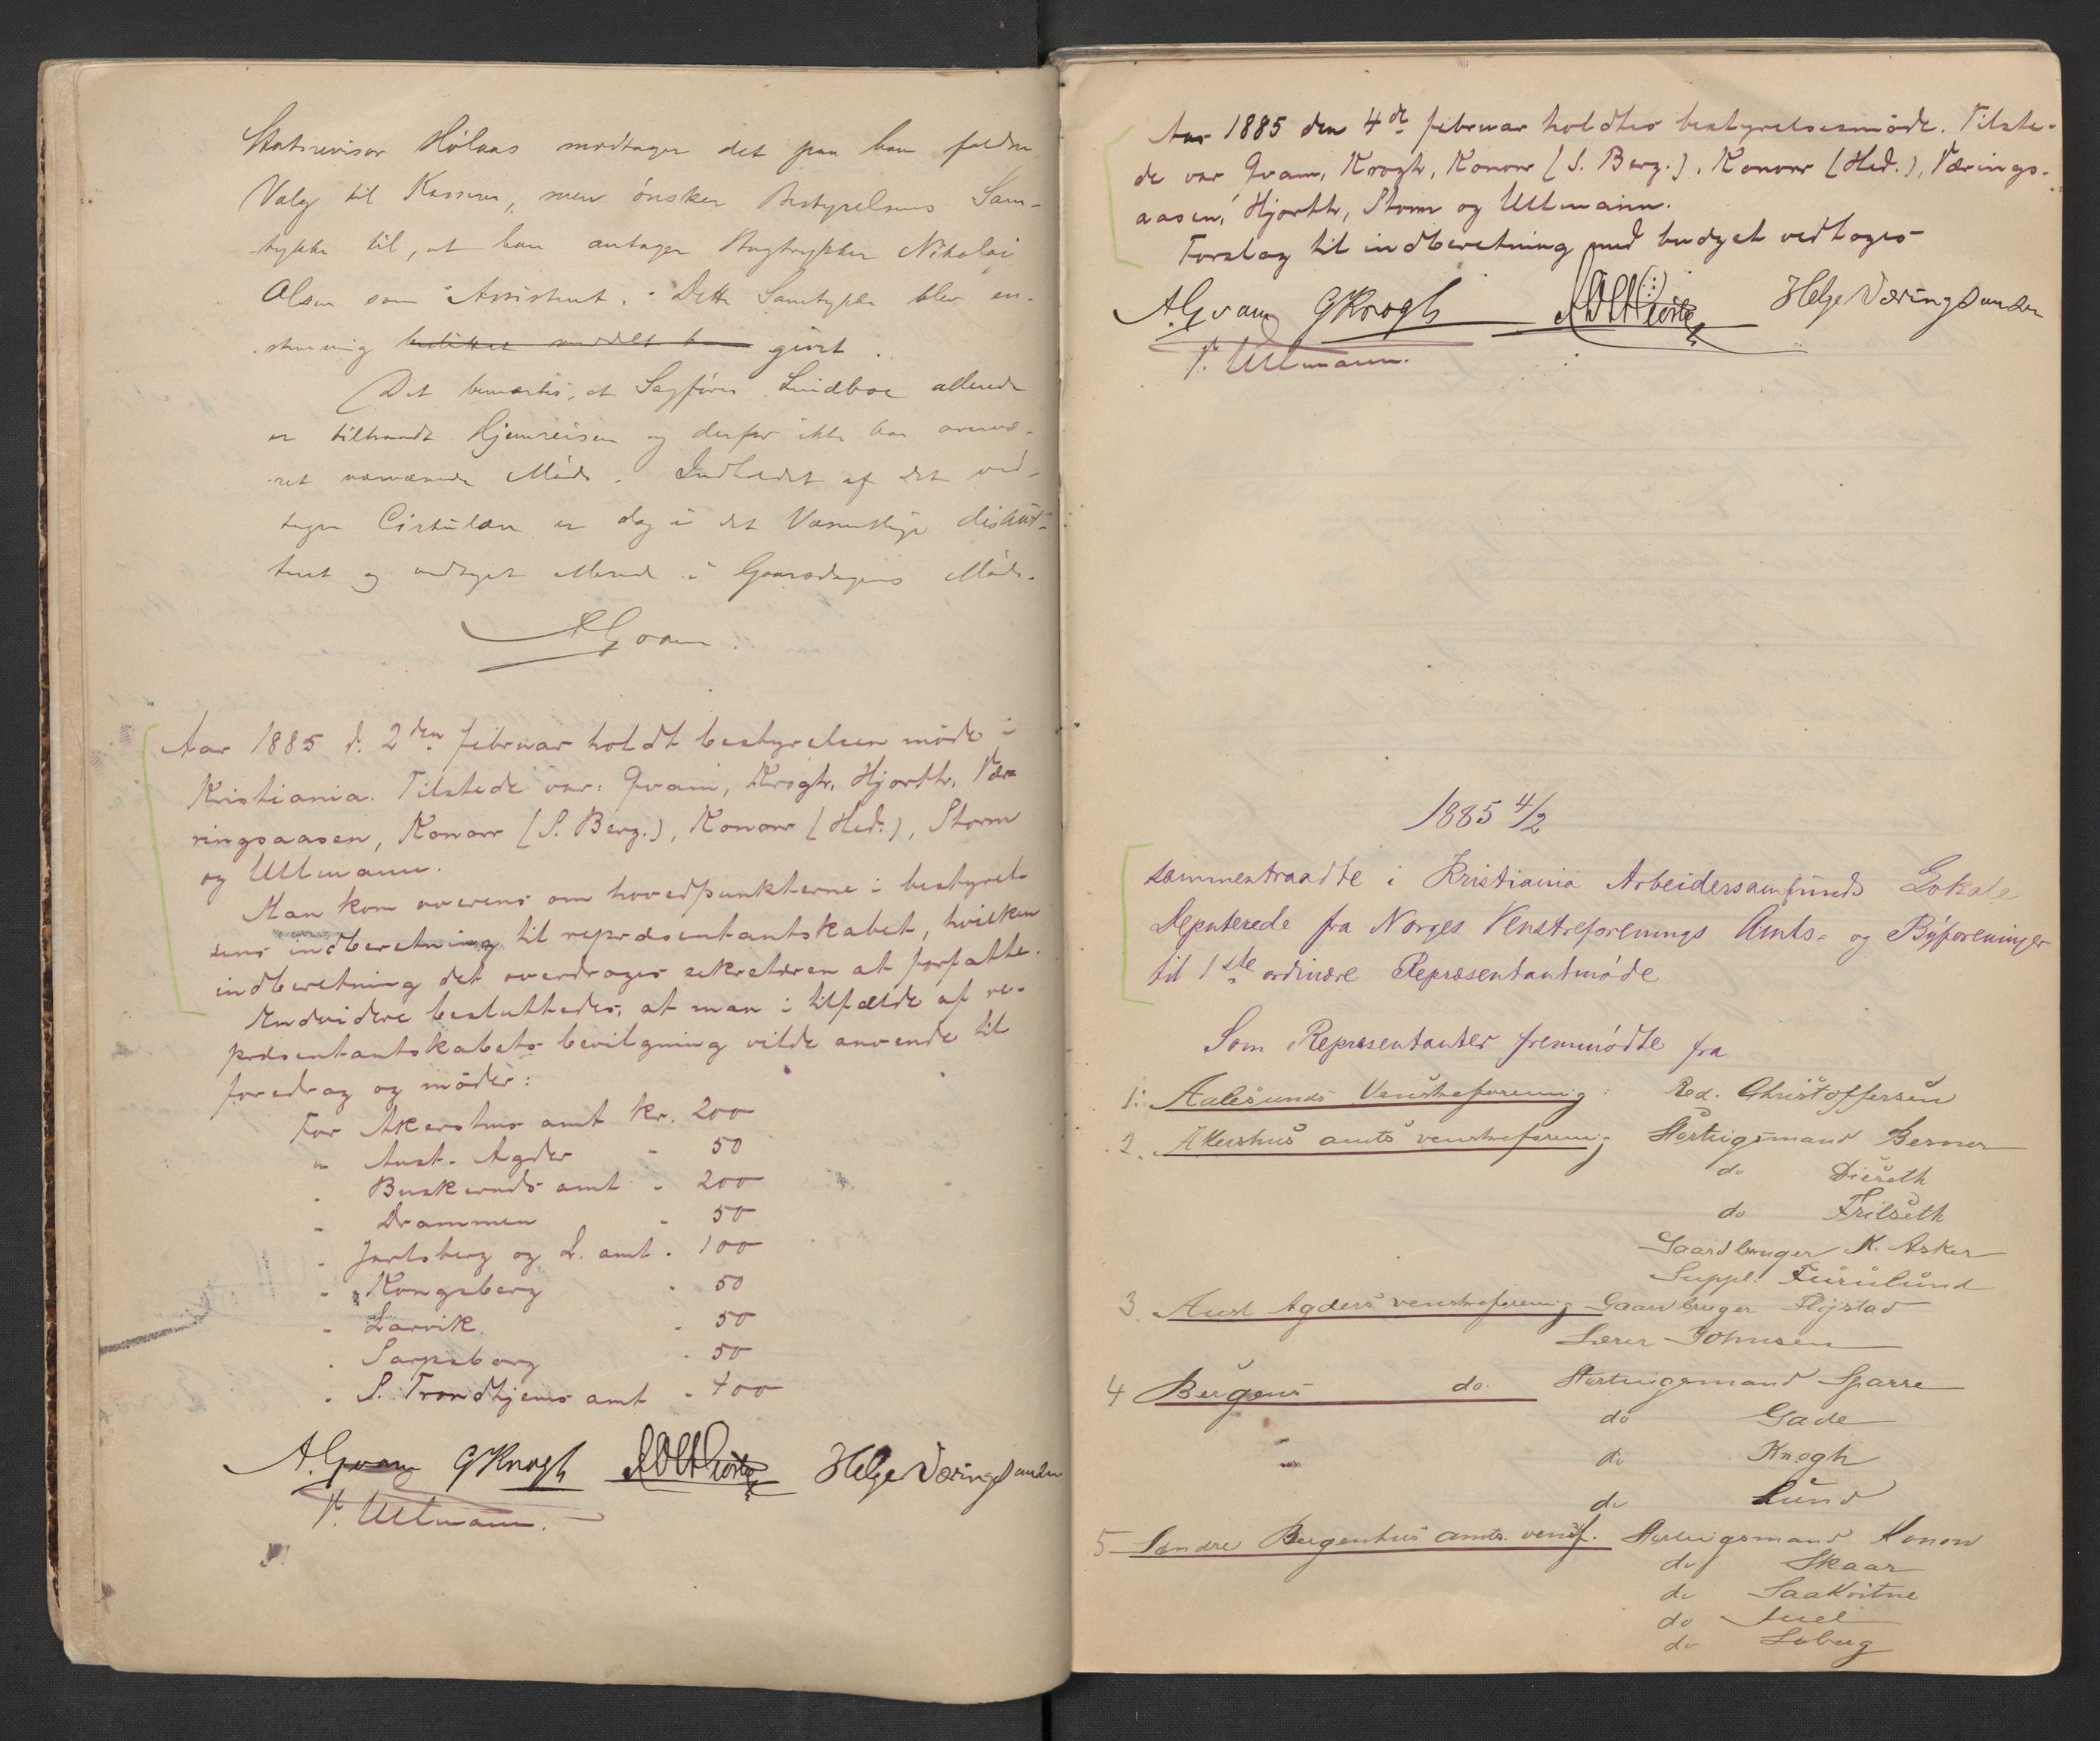 Statsrevisor Hølaas modtager det paa ham faldne
Valg til Kasserer, men ønsker Bestyrelsens Sam-
tykke til, at han antager Bogtrykker Nikolai
Olsen som Assistent. Dette Samtykke blev en-
stemmig meddelt ham givet.
Det bemærkes, at Sagfører Lindboe allerede
er tiltraadt Hjemreisen og derfor ikke har overvæ-
ret nærværende Møde. Indholdet af det ved-
tagne Cirkulære er dog i det Væsentlige disku-
teret og vedtaget allerede i Gaarsdagens Møde.
A Qvam.
Aar 1885 d. 2den februar holdt bestyrelsen møde i
Kristiania. Tilstede var: Qvam, Krogh, Hjorth, Væ-
ringsaasen, Konow (S. Berg.), Konow (Hed.), Storm
og Ullmann.
Man kom overens om hovedpunkterne i bestyrel-
sens indberetning til repræsentantskabet, hvilken
indberetning det overdroges sekretæren at forfatte.
Endvidere besluttedes, at man i tilfælde af re-
præsentantskabets bevilgning vilde anvende til
foredrag og møder:
For Akershus amt kr. 200
" Aust-Agder " 50
" Buskeruds amt " 200
" Drammen " 50
" Jarlsberg og L. amt " 100
" Kongsberg " 50
" Larvik " 50
" Sarpsborg " 50
" S. Trondhjems amt " 400
A. Qvam G Krogh Helge Væringsaasen
V. Ullmann.
Aar 1885 den 4de februar holdtes bestyrelsesmøde. Tilste-
de var Qvam, Krogh, Konow (S. Berg.), Konow (Hed.), Værings-
aasen, Hjorth, Storm og Ullmann.
Forslag til indberetning med budget vedtoges
A. Qvam G Krogh Helge Væringsaasen
V. Ullmann.
1885 4/2
sammentraadte i Kristiania Arbeidersamfunds Lokale
Deputerede fra Norges Venstreforenings Amts- og Byforeninger
til 1ste ordinære Repræsentantmøde
Som Repræsentanter fremmødte fra
1. Aalesunds Venstreforening: Red. Christoffersen
2. Akershus amts venstreforening Stortingsmand Berner
do Dieseth
do Frilseth
Gaardbruger K. Asker
Suppl. Furulund
3. Aust Agders venstreforening Gaardbruger Fløistad
Lærer Johnsen
4 Bergens do. Stortingsmand Sparre
do Gade
do Krogh
do Lund
5 Søndre Bergenhus amts venstf. Stortingsmand Konow
do Skaar
do Saakvitne
do Juel
do Loberg